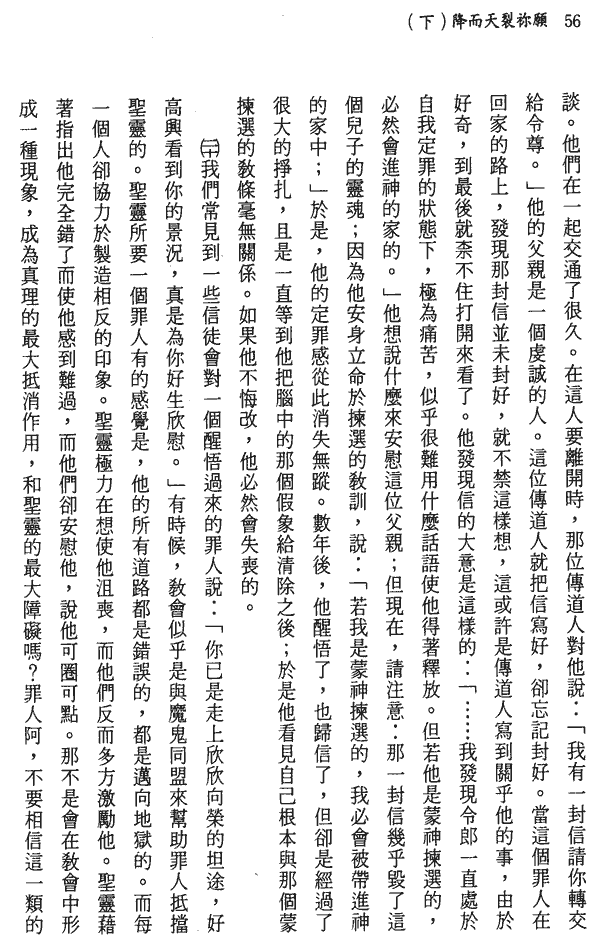 56　願祢裂天而降(下)
談。他們在一起交通了很久。在這人要離開時，那位傳道人對他說：「我有一封信請你轉交
給令尊。」他的父親是一個虔誠的人。這位傳道人就把信寫好，卻忘記封好。當這個罪人在
回家的路上，發現那封信並未封好，就不禁這樣想，這或許是傳道人寫到關乎他的事，由於
好奇，到最後就奈不住打開來看了。他發現信的大意是這樣的：「……我發現令郎一直處於
自我定罪的狀態下，極為痛苦，似乎很難用什麼話語使他得著釋放。但若他是蒙神揀選的，
必然會進神的家的。」他想說什麼來安慰這位父親；但現在，請注意：那一封信幾乎毀了這
個兒子的靈魂；因為他安身立命於揀選的教訓，說：「若我是蒙神揀選的，我必會被帶進神
的家中；」於是，他的定罪感從此消失無蹤。數年後，他醒悟了，也歸信了，但卻是經過了
很大的掙扎，且是一直等到他把腦中的那個假象給清除之後；於是他看見自己根本與那個蒙
揀選的教條毫無關係。如果他不悔改，他必然會失喪的。
㈡我們常見到一些信徒會對一個醒悟過來的罪人說：「你已是走上欣欣向榮的坦途，好
高興看到你的景況，真是為你好生欣慰。」有時候，教會似乎是與魔鬼同盟來幫助罪人抵擋
聖靈的。聖靈所要一個罪人有的感覺是，他的所有道路都是錯誤的，都是邁向地獄的。而每
一個人卻協力於製造相反的印象。聖靈極力在想使他沮喪，而他們反而多方激勵他。聖靈藉
著指出他完全錯了而使他感到難過，而他們卻安慰他，說他可圈可點。那不是會在教會中形
成一種現象，成為真理的最大抵消作用，和聖靈的最大障礙嗎？罪人阿，不要相信這一類的